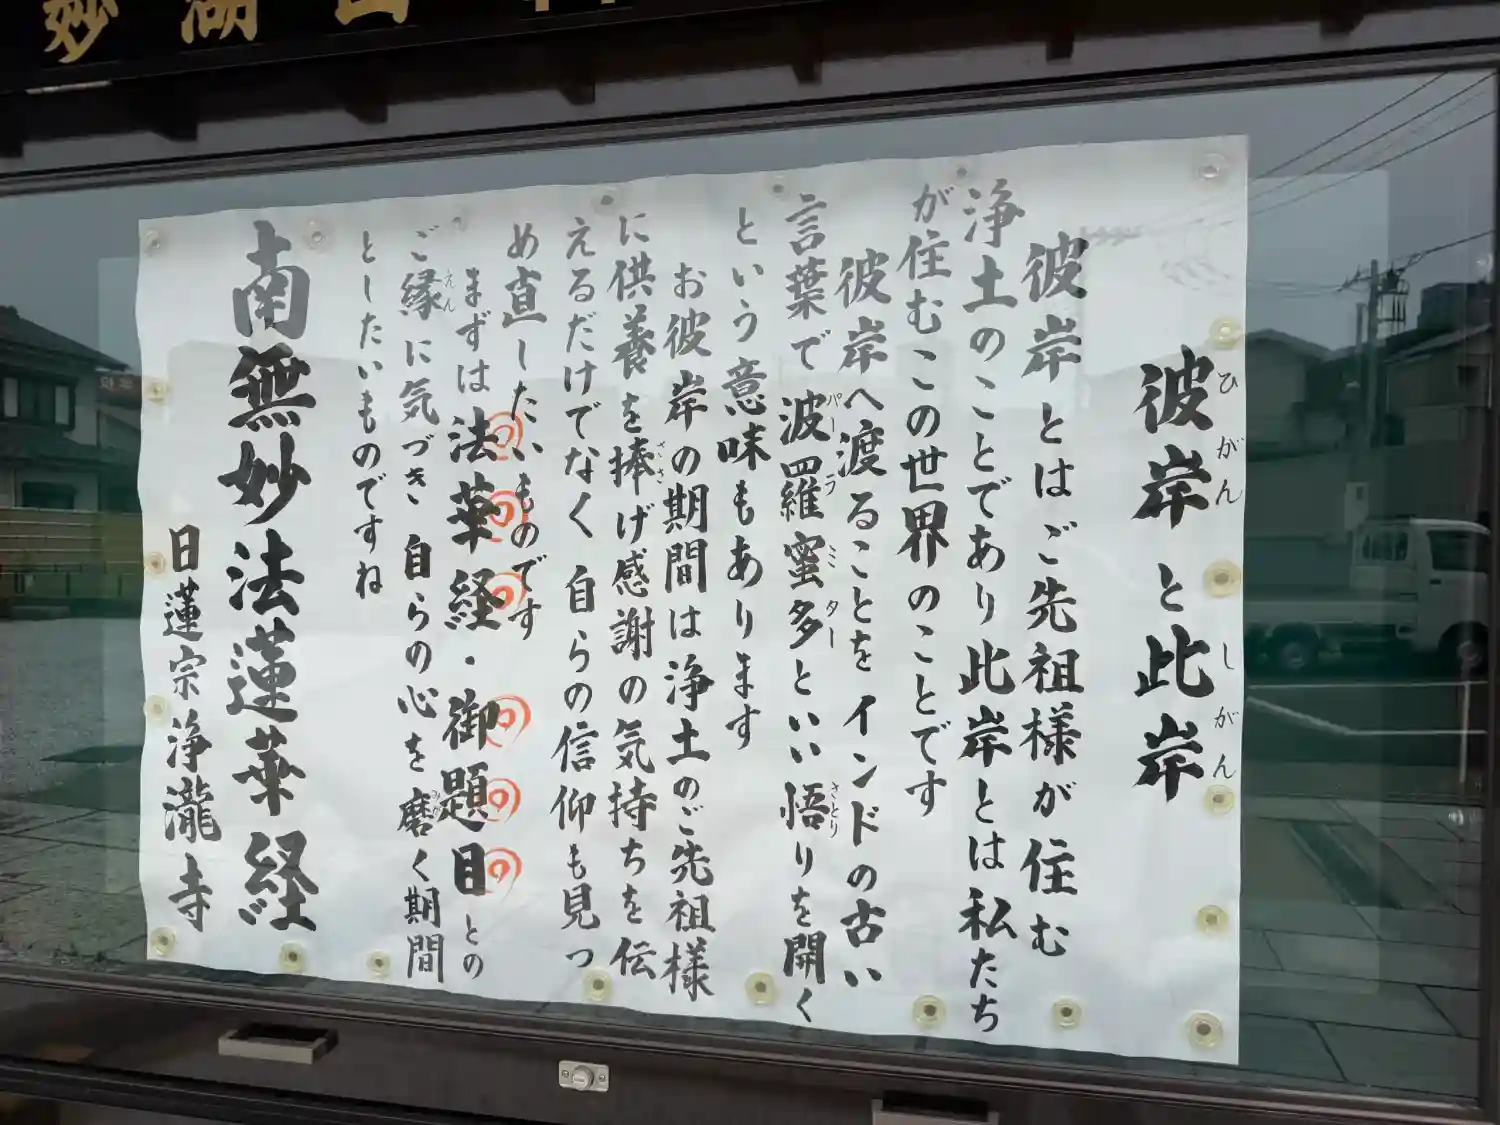 妙湖山
彼岸と此岸
ひがん
しがん
彼岸とはご先祖様が住む
浄土のことであり此岸とは私たち
が住むこの世界のことです
彼岸へ渡ることをインドの古い
言葉で波羅蜜多といい悟りを開く
パーラミター
さとり
という意味もあります
お彼岸の期間は浄土のご先祖様
に供養を捧げ感謝の気持ちを伝
ささ
えるだけでなく自らの信仰も見つ
め直したいものです
まずは法華経・御題目との
ご縁に気づき自らの心を磨く期間
えん
みが
としたいものですね
南無妙法蓮華経
日蓮宗浄瀧寺